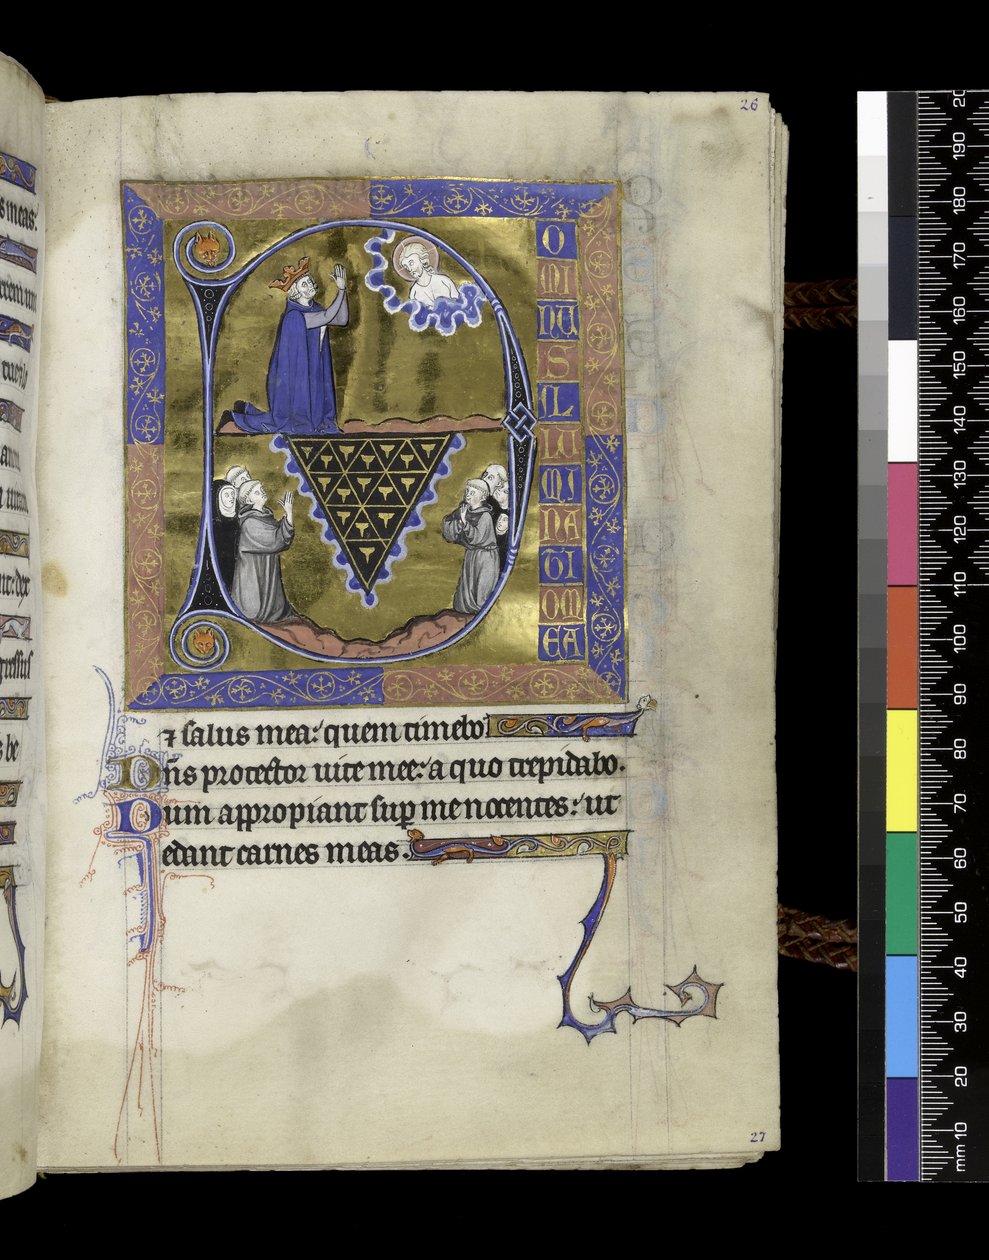 26
D
O
MI
NU
S
IL
LU
MI
NA
TI
OM
EA
⁊ ſalus mea: quem timebo
Dn̄s protector uite mee: a quo trepidabo.
Dum appropiant ſuꝑ me nocentes: ut
edant carnes meas.
27
s meas:
190
180
170
160
150
140
130
120
110
100
90
80
70
60
50
40
30
20
mm 10